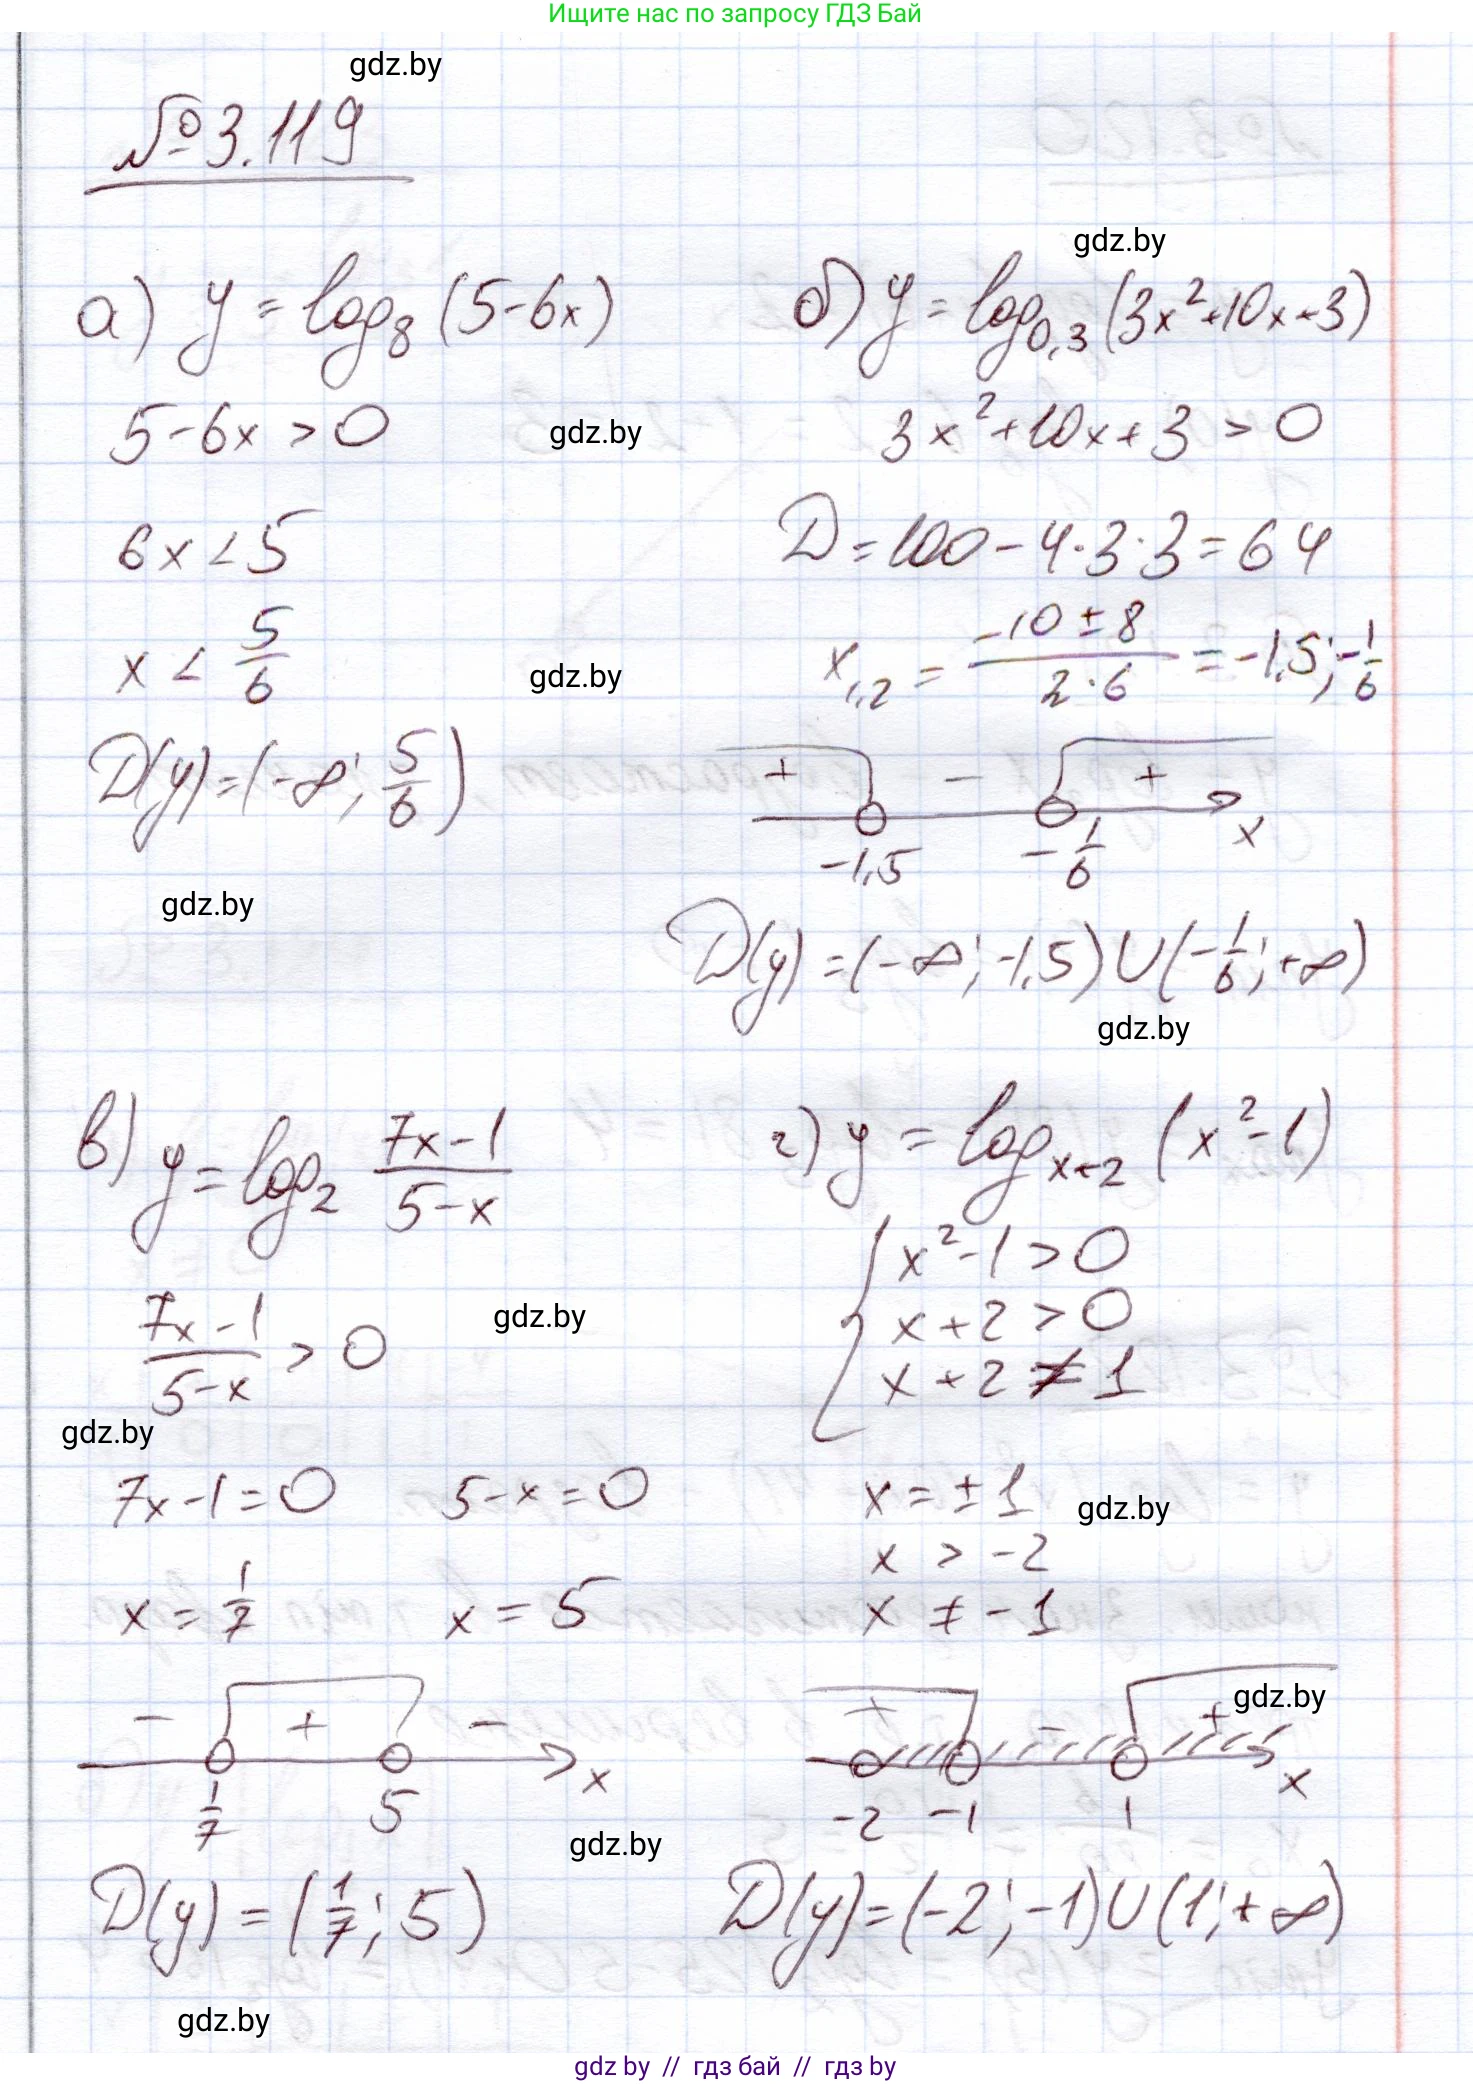 Ищите нас по запросу ГДЗ Бай
gdz.by
№3.119
gdz.by
а) y = log₈ (5-6x)
5-6x > 0
gdz.by
6x < 5
x < 5/6
gdz.by
D(y)=(-∞; 5/6)
gdz.by
б) y = log₀,₃ (3x²+10x+3)
3x²+10x+3 > 0
D = 100 - 4·3·3 = 64
x₁,₂ = (-10 ± 8)/(2·6) = -1,5; -1/6
+ - +
-1,5 -1/6 x
D(y) = (-∞; -1,5) U (-1/6; +∞)
gdz.by
в) y = log₂ (7x-1)/(5-x)
(7x-1)/(5-x) > 0
gdz.by
gdz.by
7x-1=0 5-x=0
x = 1/7 x = 5
- + -
1/7 5 x
gdz.by
D(y) = (1/7; 5)
gdz.by
г) y = log_{x+2} (x²-1)
x²-1 > 0
x + 2 > 0
x + 2 ≠ 1
x = ±1
gdz.by
x > -2
x ≠ -1
gdz.by
+ - +
-2 -1 1 x
D(y) = (-2; -1) U (1; +∞)
gdz by // гдз бай // гдз by